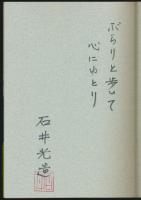 ぶらりと歩いて
心にゆとり
石井光造